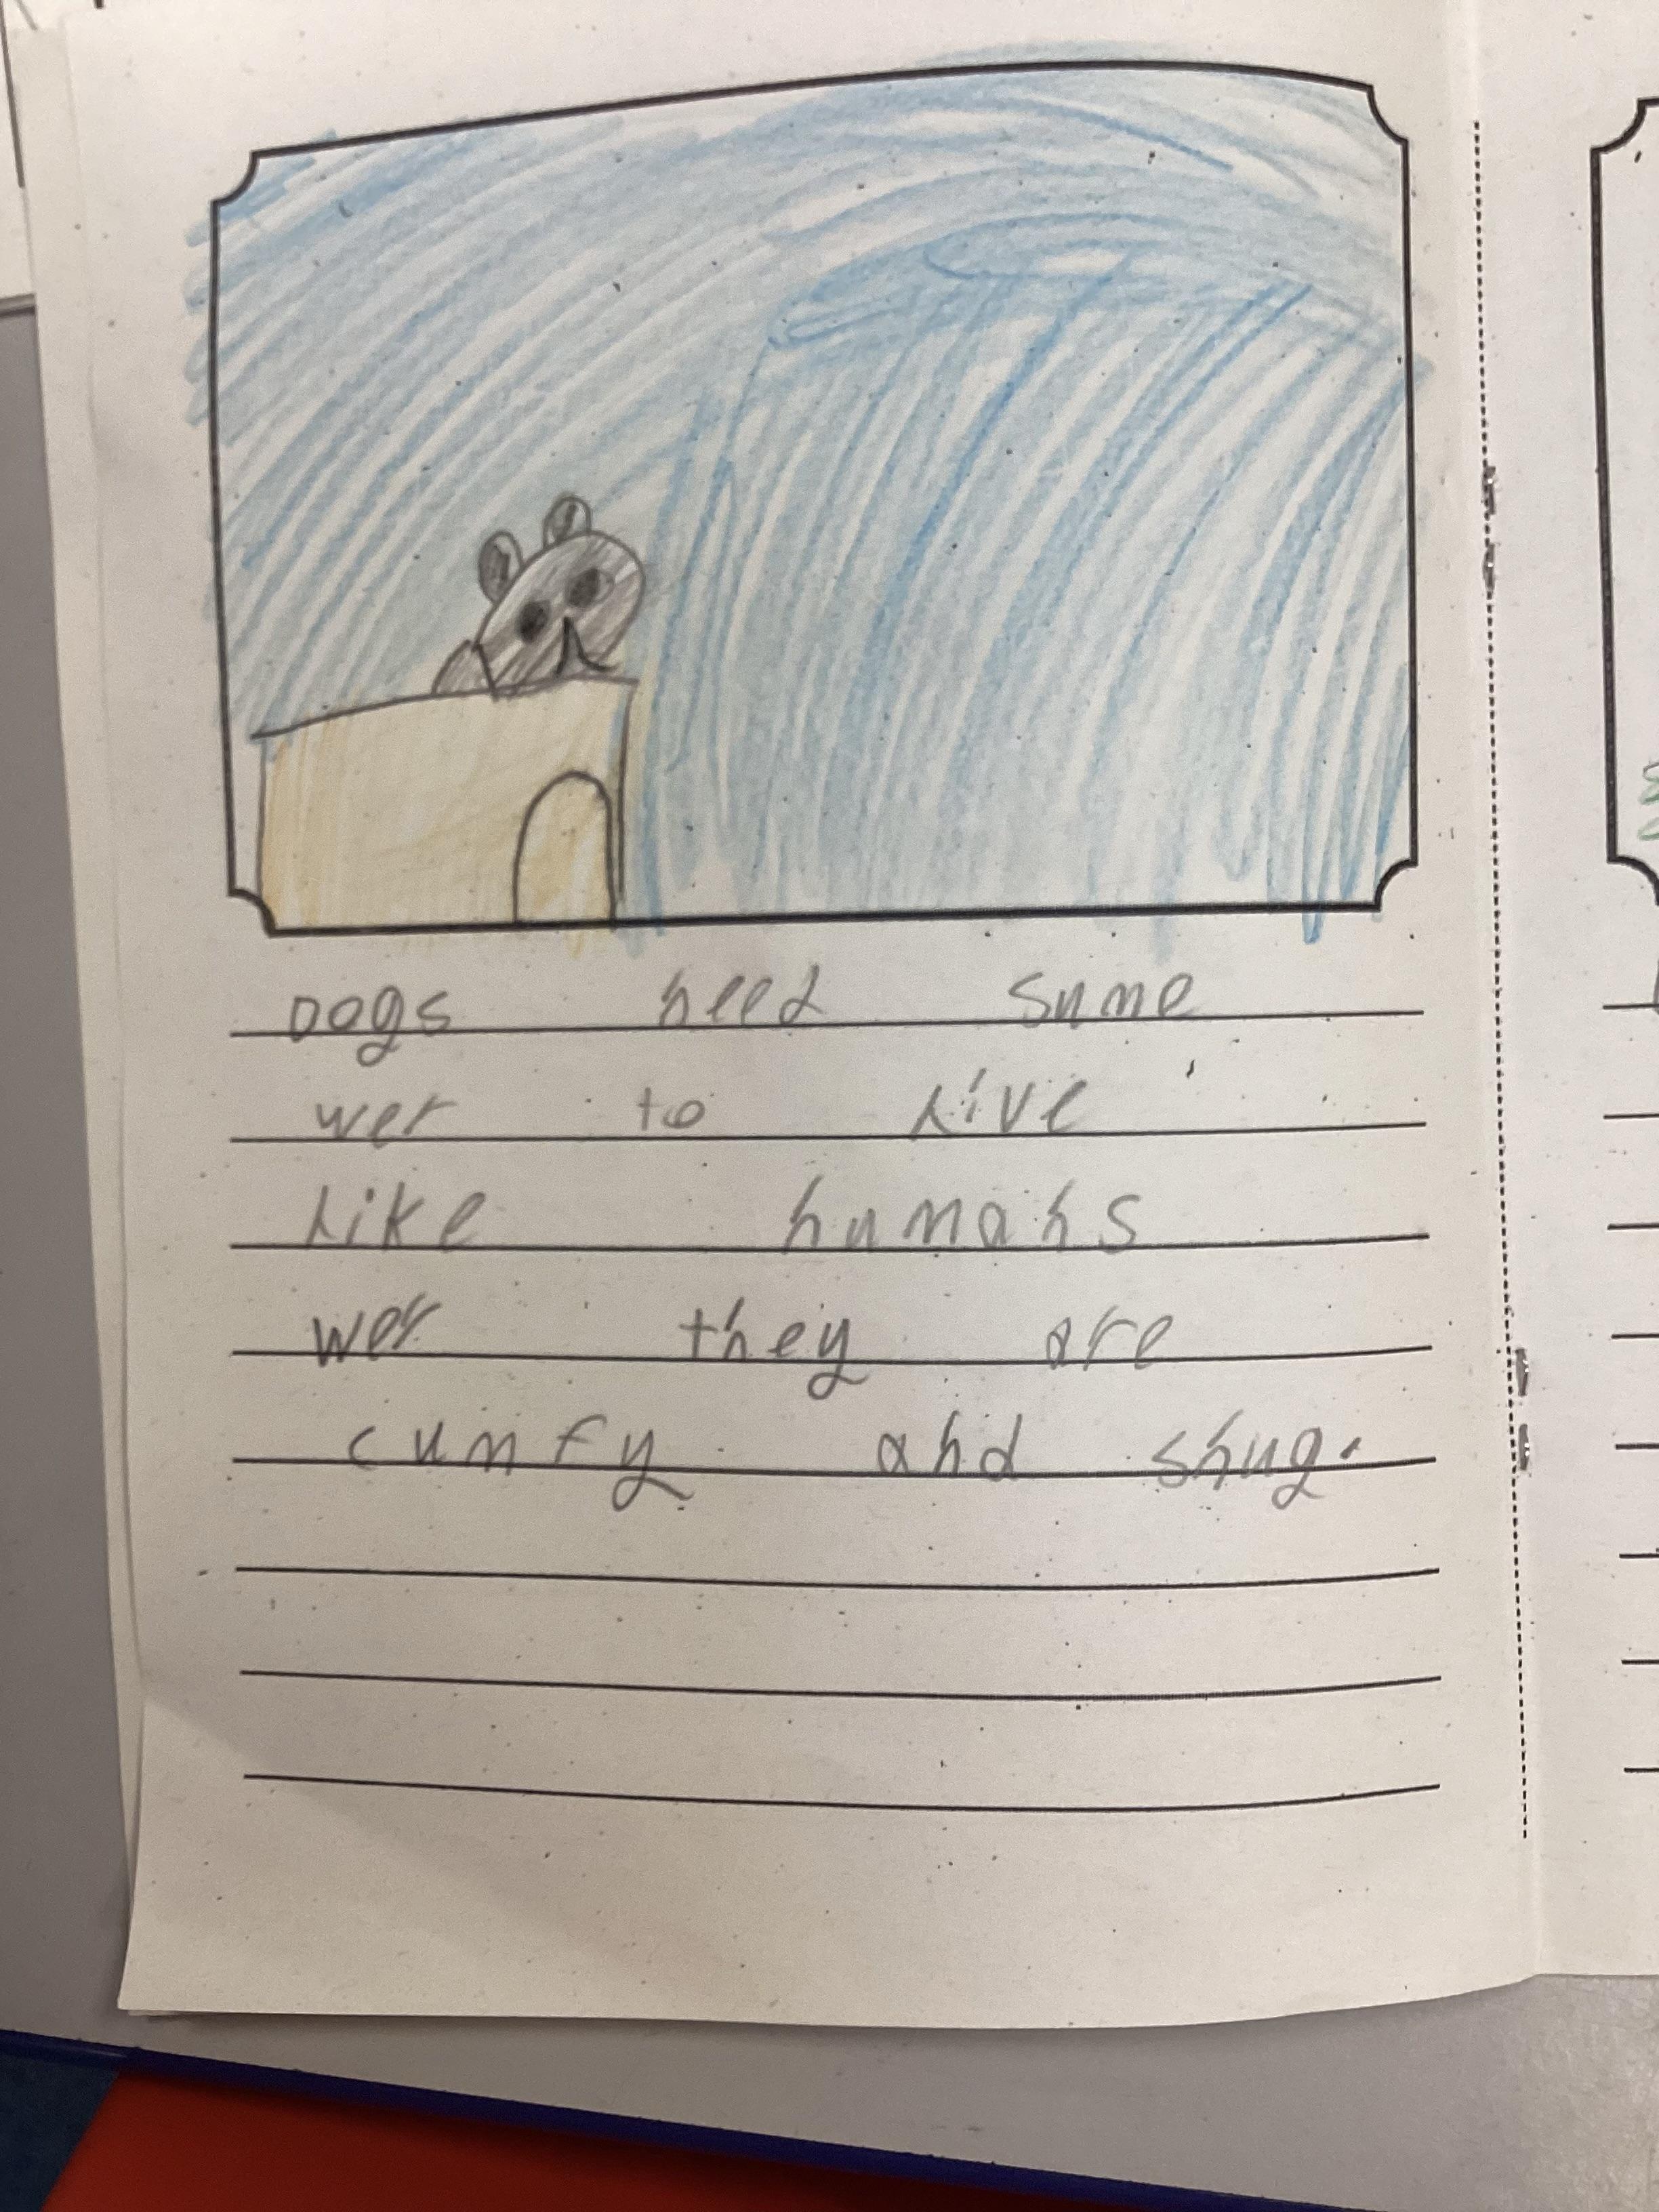 Dogs need sume
wer to live
like humans
wer they are
cumfy and snug.